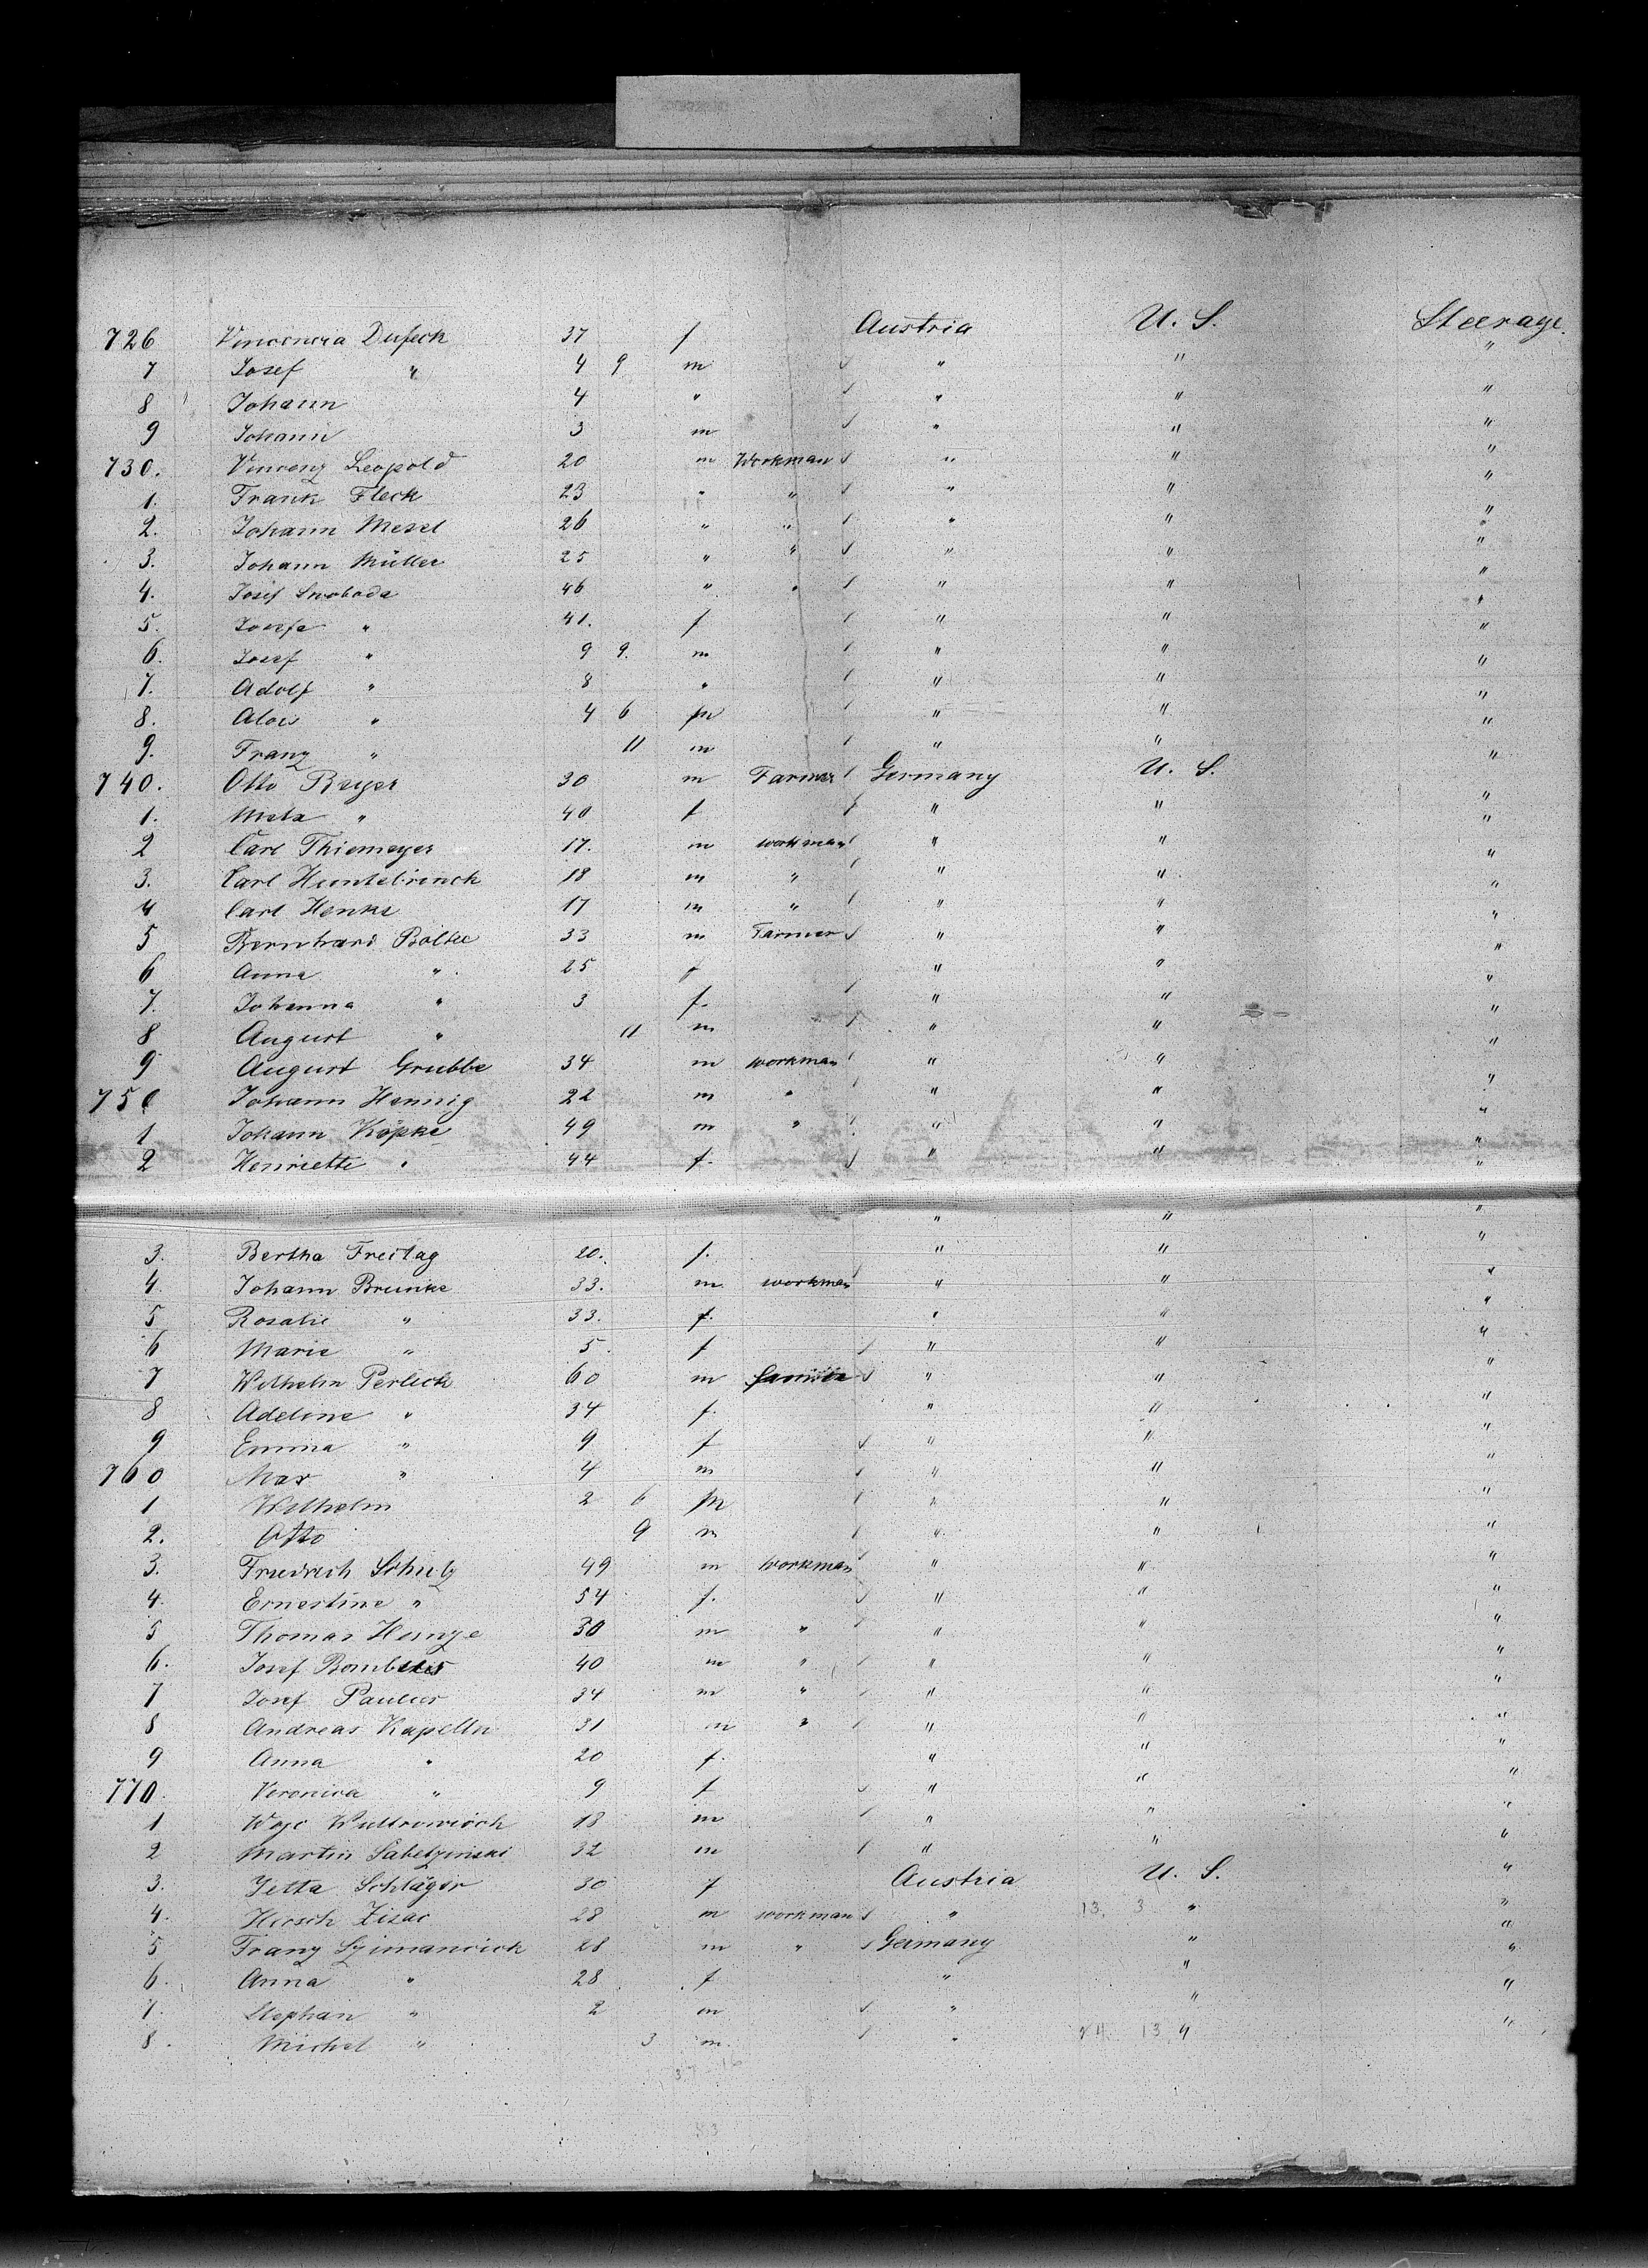 726 Dufeck 37 f Austria U. S. Steerage.
7 Josef " 4 9 m " " "
8 Johann 4 " " " "
9 Johann 3 m " " "
730. Vincenz Leopold 20 m Workman " " "
1. Frank Fleck 23 " " " " "
2. Johann Mesel 26 " " " " "
3. Johann Müller 25 " " " " "
4. Josef Swoboda 46 " " " " "
5. Josefa " 41. f " " "
6. Josef " 9 9. m " " "
7. Adolf " 8 " " " "
8. Alois " 4 6 m " " "
9. Franz " 11 m " " "
740. Otto Beyer 30 m Farmer Germany U. S. "
1. Meta " 40 f " " "
2 Carl Thiemeyer 17. m workman " " "
3. Carl Huntebrinck 18 m " " " "
4 Carl Henke 17 m " " " "
5 Bernhard Boltee 33 m Farmer " " "
6 Anna " 25 f " " "
7. Johanna " 3 f. " " "
8 August " 11 m " " "
9 August Grubbe 34 m workman " " "
750 Johann Hennig 22 m " " " "
1 Johann Köpke 49 m " " " "
2 Henriette " 44 f. " " "
" " "
3. Bertha Freitag 20. f. " " "
4. Johann Brunke 33. m workman " " "
5 Rosalie " 33. f. " " "
6 Marie " 5. f " " "
7 Wilhelm Perleck 60 m " " "
8 Adeline " 34 f. " " "
9 Emma " 9 f " " "
760 Max " 4 m " " "
1 Wilhelm 2 6 m " " "
2. Otto 9 m " " "
3. Friedrich Schulz 49 m workman " " "
4. Ernestine " 54 f. " " "
5 Thomas Heinze 30 m " " " "
6. Josef 40 m " " " "
7 Josef Paulus 34 m " " " "
8 Andreas Kapelln 31 m " " " "
9 Anna " 20 f. " " "
770. Veronica " 9 f " " "
1 18 m " " "
2 Martin 32 m " " "
3. Jetta Schläger 30 f Austria U. S. "
4. Hersch Zisac 28 m workman " 13. 3 " "
5 Franz 28 m " Germany " "
6. Anna " 28 f " " "
7. Stephan " 2 m " " "
8. Michel " 3 m. " 24. 13 " "
37 16